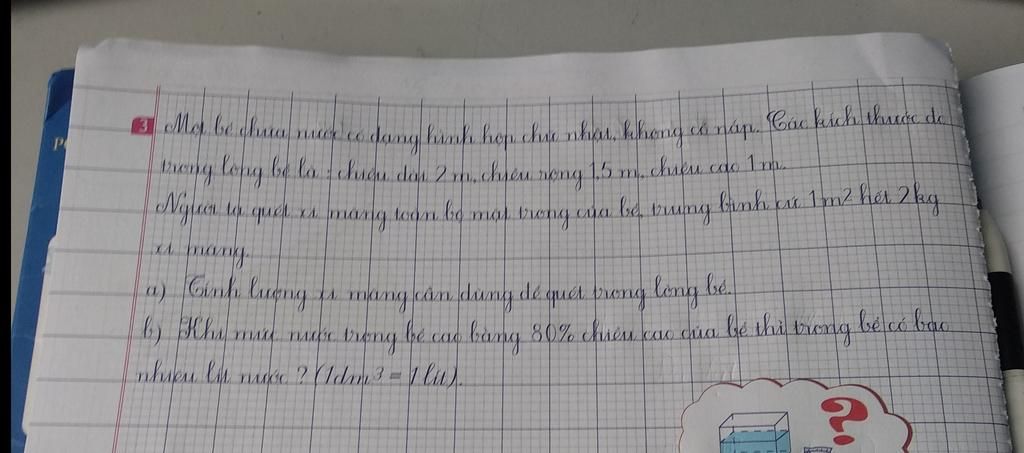 3 Một bể chứa nước có dạng hình hộp chữ nhật, không có nắp. Các kích thước đo
trong lòng bể là : chiều dài 2 m, chiều rộng 1,5 m, chiều cao 1 m.
Người ta quét xi măng toàn bộ mặt trong của bể, trung bình cứ 1 m2 hết 2 kg
xi măng.
a) Tính lượng xi măng cần dùng để quét trong lòng bể.
b) Khi mức nước trong bể cao bằng 80% chiều cao của bể thì trong bể có bao
nhiêu lít nước ? (1dm3 = 1 lít).
?